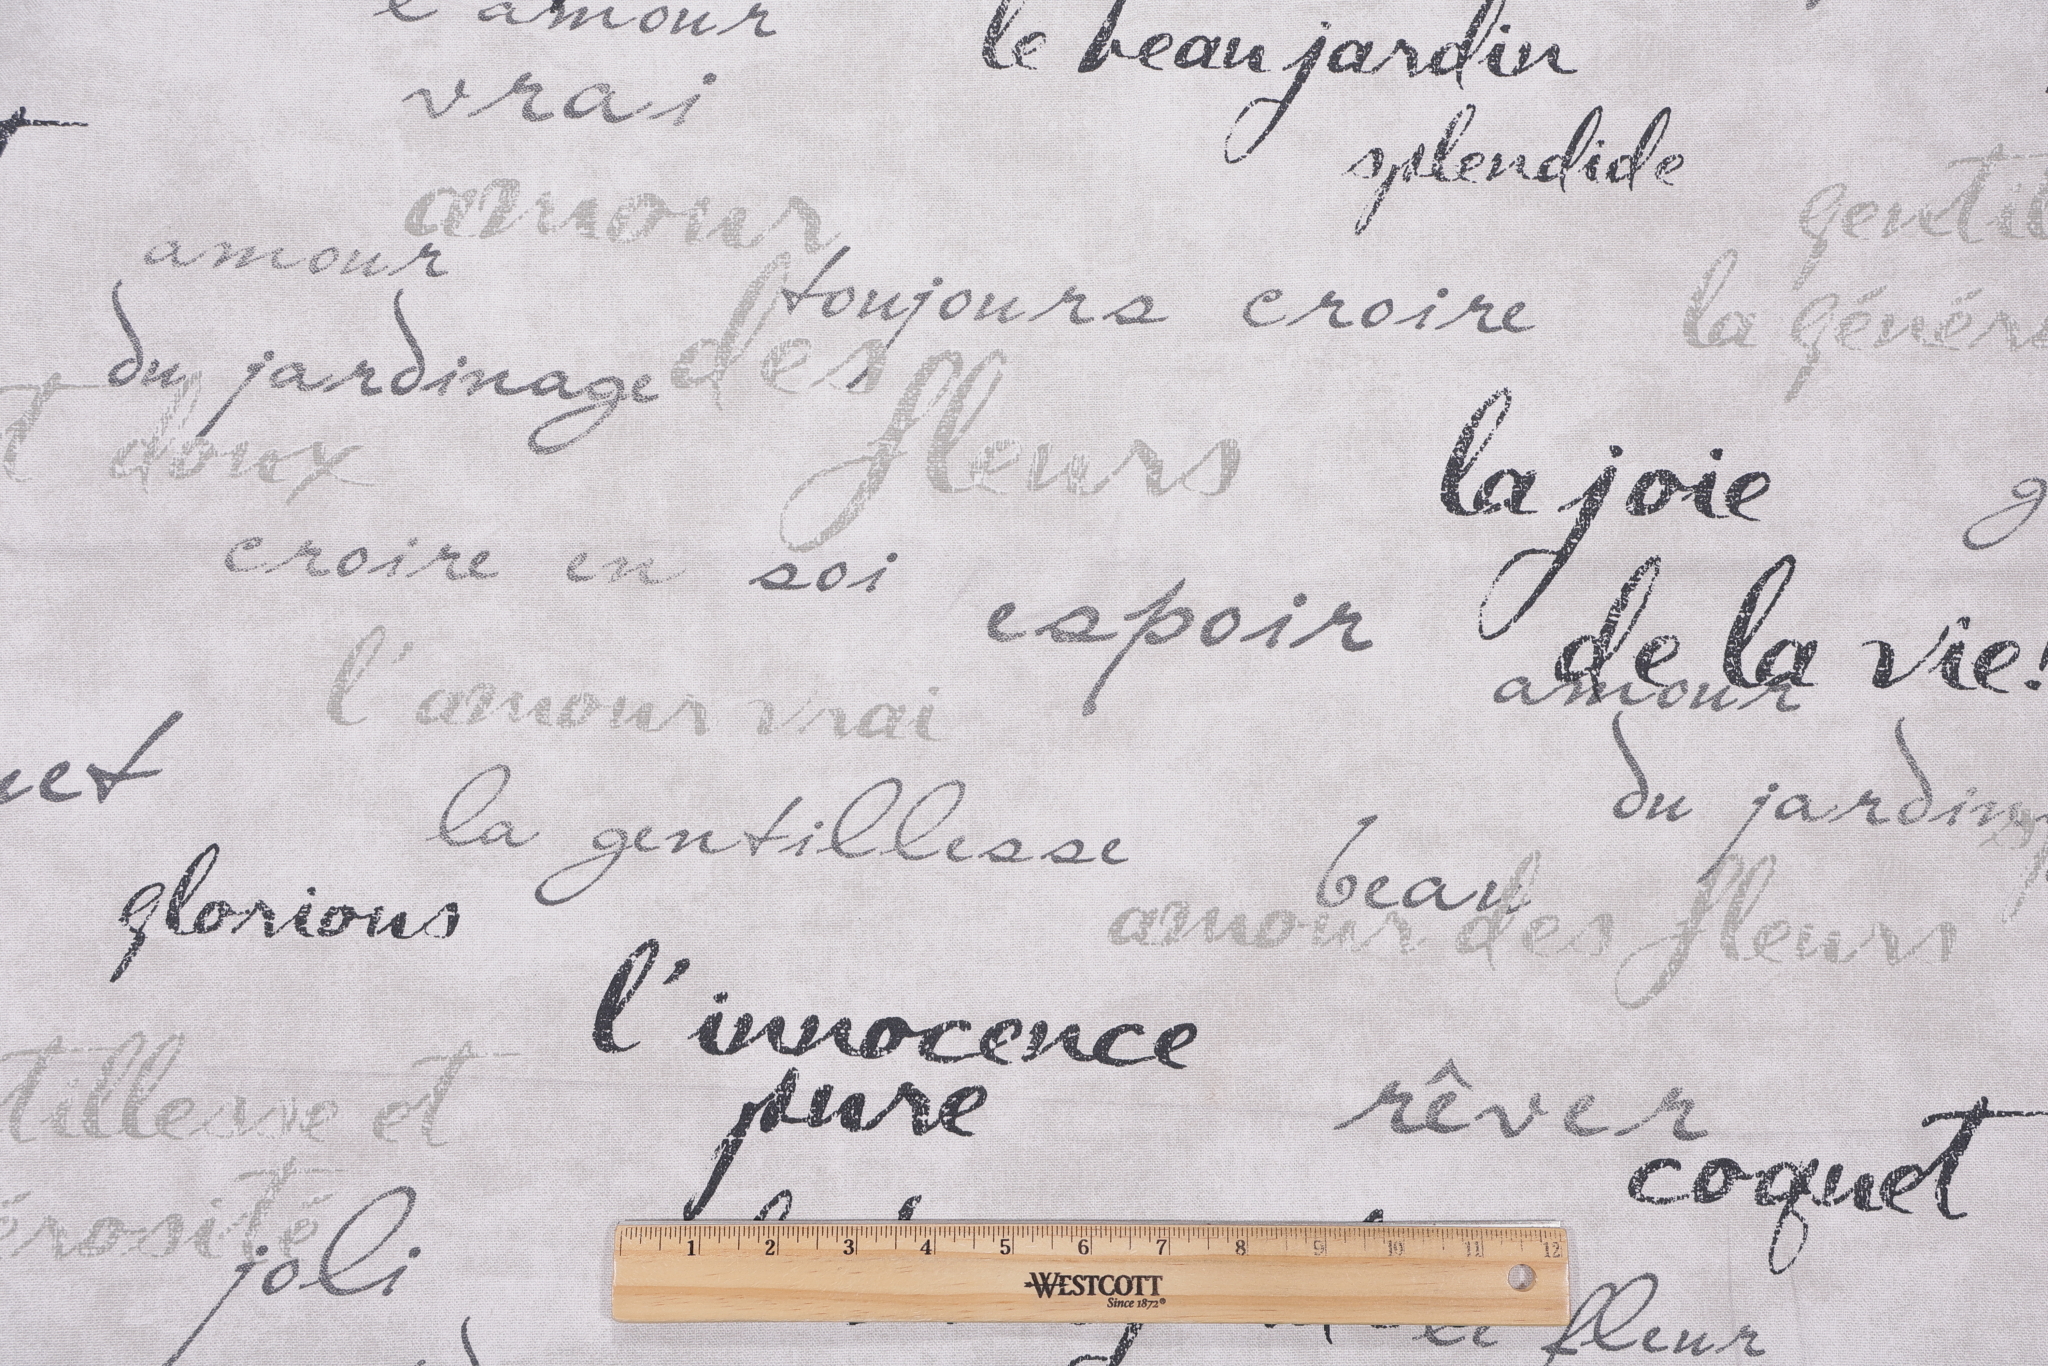 l'amour
vrai
le beau jardin
splendide
amour
amour
des
fleurs
toujours croire
du jardinage
doux
la
la joie
de la vie!
croire en soi
espoir
l'amour vrai
amour
du
la gentillesse
beau
amour des fleurs
glorious
l'innocence
pure
et
rêver
coquet
joli
1 2 3 4 5 6 7 8 9 10 11 12
WESTCOTT
Since 1872®
fleur